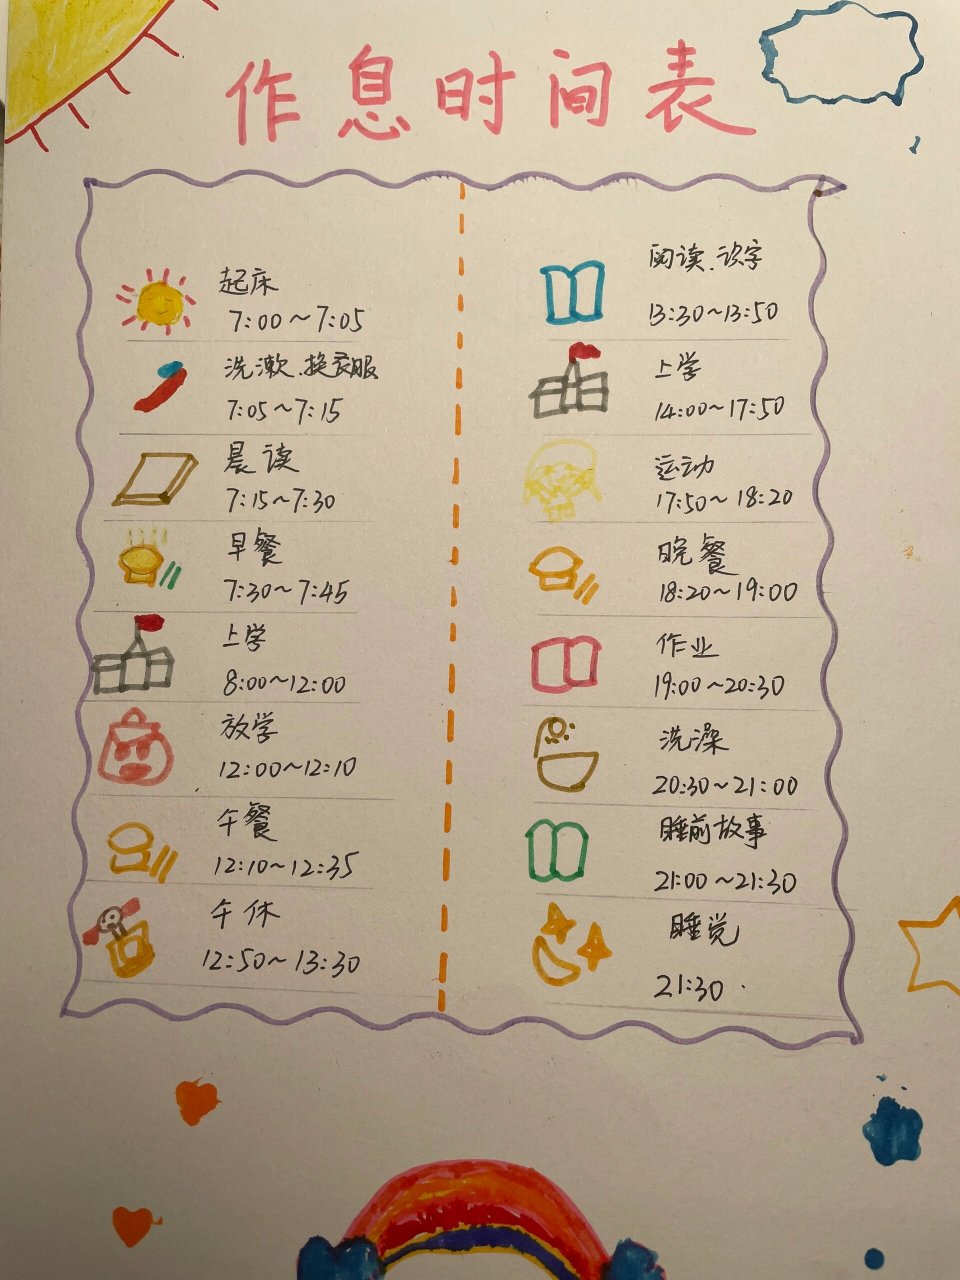 作息时间表
起床
7:00～7:05
洗漱、换衣服
7:05～7:15
晨读
7:15～7:30
早餐
7:30～7:45
上学
8:00～12:00
放学
12:00～12:10
午餐
12:10～12:35
午休
12:50～13:30
阅读、识字
13:30～13:50
上学
14:00～17:50
运动
17:50～18:20
晚餐
18:20～19:00
作业
19:00～20:30
洗澡
20:30～21:00
睡前故事
21:00～21:30
睡觉
21:30